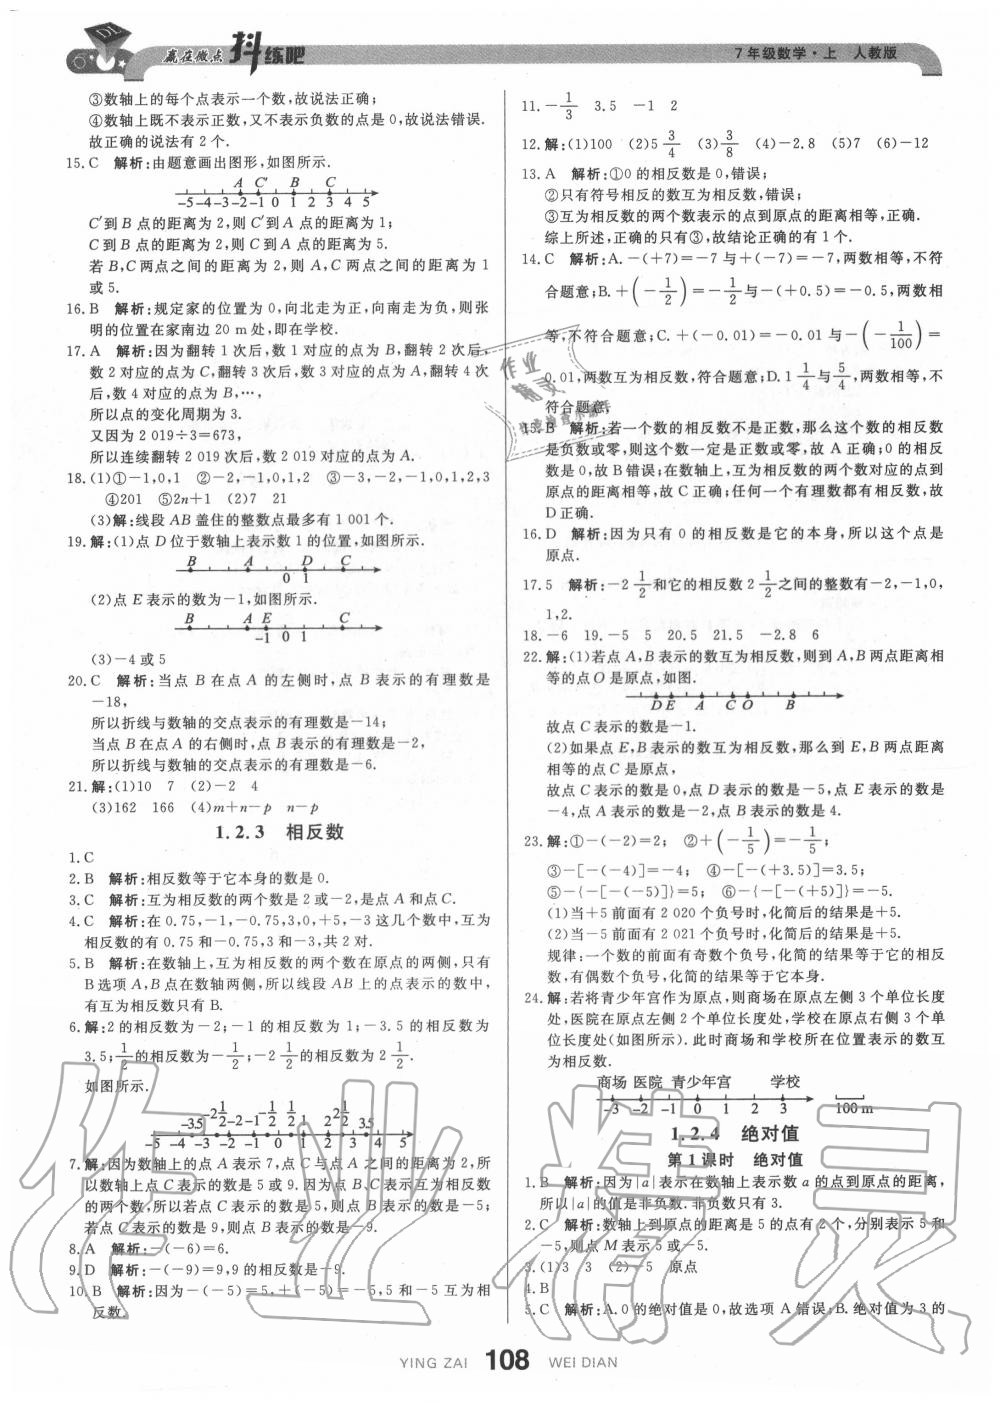 DL
赢在微点 抖练吧
7年级数学·上 人教版
③数轴上的每个点表示一个数,故说法正确;
④数轴上既不表示正数,又不表示负数的点是0,故说法错误.
故正确的说法有2个.
15.C 解析:由题意画出图形,如图所示.
A C′ B C
-5-4-3-2-1 0 1 2 3 4 5
C′到B点的距离为2,则C′到A点的距离为1;
C到B点的距离为2,则C到A点的距离为5.
若B,C两点之间的距离为2,则A,C两点之间的距离为1
或5.
16.B 解析:规定家的位置为0,向北走为正,向南走为负,则张
明的位置在家南边20 m处,即在学校.
17.A 解析:因为翻转1次后,数1对应的点为B,翻转2次后,
数2对应的点为C,翻转3次后,数3对应的点为A,翻转4次
后,数4对应的点为B,…,
所以点的变化周期为3.
又因为2 019÷3=673,
所以连续翻转2 019次后,数2 019对应的点为A.
18.(1)①-1,0,1 ②-2,-1,0,1,2 ③-3,-2,-1,0,1,2,3
④201 ⑤2n+1 (2)7 21
(3)解:线段AB盖住的整数点最多有1 001个.
19.解:(1)点D位于数轴上表示数1的位置,如图所示.
B A D C
0 1
(2)点E表示的数为-1,如图所示.
B A E C
-1 0 1
(3)-4或5
20.C 解析:当点B在点A的左侧时,点B表示的有理数是
-18,
所以折线与数轴的交点表示的有理数是-14;
当点B在点A的右侧时,点B表示的有理数是-2,
所以折线与数轴的交点表示的有理数是-6.
21.解:(1)10 7 (2)-2 4
(3)162 166 (4)m+n-p n-p
1.2.3 相反数
1.C
2.B 解析:相反数等于它本身的数是0.
3.C 解析:互为相反数的两个数是2或-2,是点A和点C.
4.C 解析:在0.75,-1,-0.75,3,0,+5,-3这几个数中,互为
相反数的有0.75和-0.75,3和-3,共2对.
5.B 解析:在数轴上,互为相反数的两个数在原点的两侧,只有
B选项A,B点在数轴两侧,所以线段AB上的点表示的数中,
有互为相反数只有B.
6.解:2的相反数为-2;-1的相反数为1;-3.5的相反数为
3.5;1/2的相反数为-1/2;-2 1/2的相反数为2 1/2.
如图所示.
-3.5 -2 1/2 -2 -1 -1/2 1/2 1 2 2 1/2 3.5
-5 -4 -3 -2 -1 0 1 2 3 4 5
7.解:因为数轴上的点A表示7,点C与点A之间的距离为2,所
以数轴上点C表示的数是5或9.因为点B,C表示互为相反数
的两个数,所以若点C表示的数是5,则点B表示的数是-5;
若点C表示的数是9,则点B表示的数是-9.
8.A 解析:-(-6)=6.
9.D 解析:-(-9)=9,9的相反数是-9.
10.B 解析:因为-(-5)=5,+(-5)=-5,5和-5互为相
反数.
11.-1/3 3.5 -1 2
12.解:(1)100 (2)5 3/4 (3)3/8 (4)-2.8 (5)7 (6)-12
13.A 解析:①0的相反数是0,错误;
②只有符号相反的数互为相反数,错误;
③互为相反数的两个数表示的点到原点的距离相等,正确.
综上所述,正确的只有③,故结论正确的有1个.
14.C 解析:A.-(+7)=-7与+(-7)=-7,两数相等,不符
合题意;B.+(-1/2)=-1/2与-(+0.5)=-0.5,两数相
等,不符合题意;C.+(-0.01)=-0.01与-(-1/100)=
0.01,两数互为相反数,符合题意;D.1 1/4与5/4,两数相等,不
符合题意.
15.B 解析:若一个数的相反数不是正数,那么这个数的相反数
是负数或零,则这个数一定是正数或零,故A正确;0的相反
数是0,故B错误;在数轴上,互为相反数的两个数对应的点到
原点的距离相等,故C正确;任何一个有理数都有相反数,故
D正确.
16.D 解析:因为只有0的相反数是它的本身,所以这个点是
原点.
17.5 解析:-2 1/2和它的相反数2 1/2之间的整数有-2,-1,0,
1,2.
18.-6 19.-5 5 20.5 21.5 -2.8 6
22.解:(1)若点A,B表示的数互为相反数,则到A,B两点距离相
等的点O是原点,如图.
D E A C O B
故点C表示的数是-1.
(2)如果点E,B表示的数互为相反数,那么到E,B两点距离
相等的点C是原点,
故点C表示的数是0,点D表示的数是-5,点E表示的数是
-4,点A表示的数是-2,点B表示的数是4.
23.解:①-(-2)=2; ②+(-1/5)=-1/5;
③-[-(-4)]=-4; ④-[-(+3.5)]=3.5;
⑤-{-[-(-5)]}=5; ⑥-{-[-(+5)]}=-5.
(1)当+5前面有2 020个负号时,化简后的结果是+5.
(2)当-5前面有2 021个负号时,化简后的结果是+5.
规律:一个数的前面有奇数个负号,化简的结果等于它的相反
数,有偶数个负号,化简的结果等于它本身.
24.解:若将青少年宫作为原点,则商场在原点左侧3个单位长度
处,医院在原点左侧2个单位长度处,学校在原点右侧3个单
位长度处(如图所示).此时商场和学校所在位置表示的数互
为相反数.
商场 医院 青少年宫 学校
-3 -2 -1 0 1 2 3 100 m
1.2.4 绝对值
第1课时 绝对值
1.B 解析:因为|a|表示在数轴上表示数a的点到原点的距离,
所以|a|的值是非负数.非负数只有3.
2.C 解析:数轴上到原点的距离是5的点有2个,分别表示5和
-5,则点M表示5或-5.
3.(1)3 3 (2)-5 原点
4.B
5.C 解析:A.0的绝对值是0,故选项A错误;B.绝对值为3的
YING ZAI 108 WEI DIAN
作业精灵